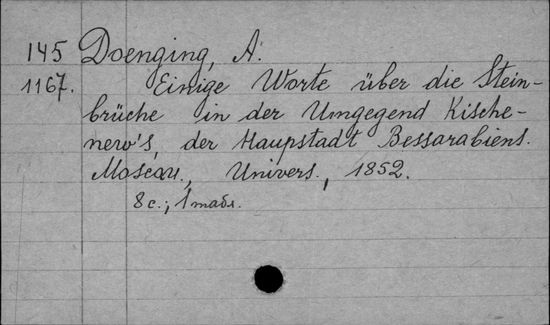 145 Doenging, A.
1167. Einige Worte über die Stein-
brüche in der Umgegend Kische-
new's, der Haupstadt Bessarabiens.
Moscau., Univers., 1852.
8 с.; 1 табл.